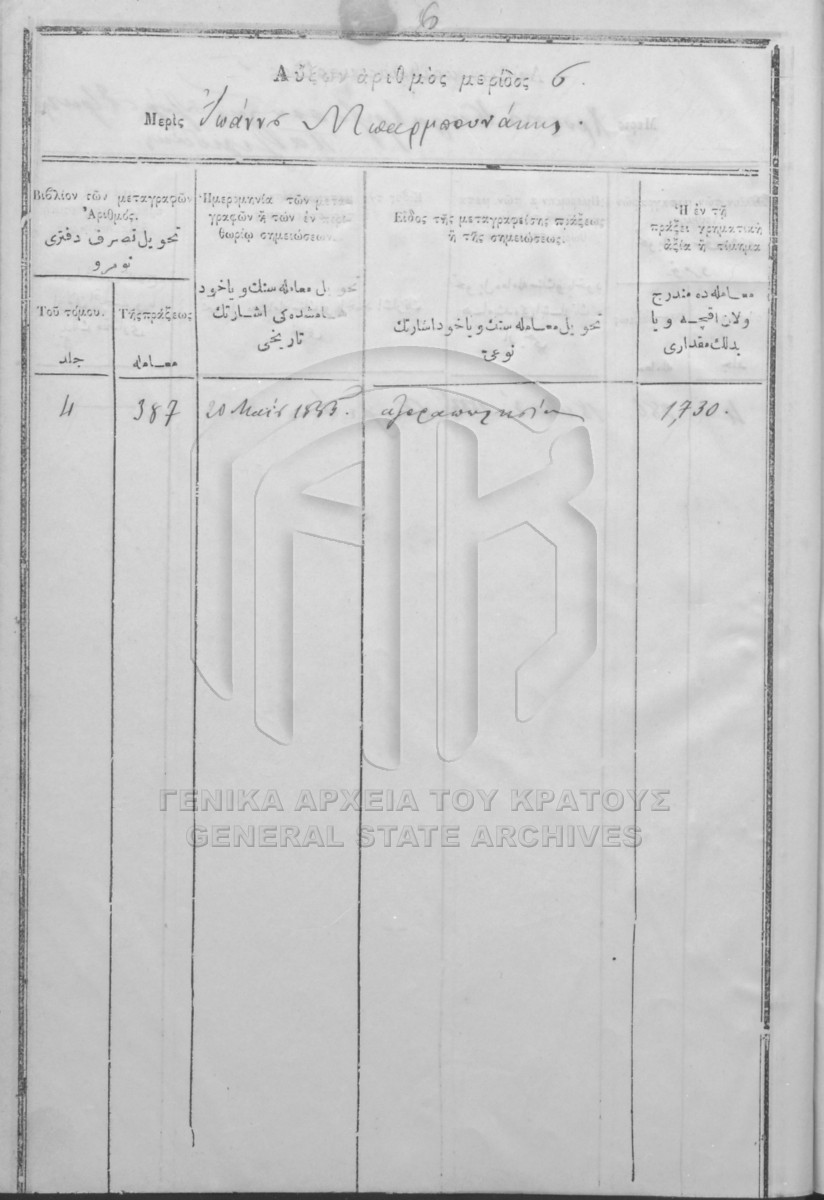 6
Αὔξων ἀριθμὸς μερίδος 6.
Μερὶς Ἰωάννς Μπαρμπουνάκης.
Βιβλίον τῶν μεταγραφῶν
Ἀριθμός.
تحويل تصرف دفترى
نومرو
Ἡμερομηνία τῶν μετα
γραφῶν ἢ τῶν ἐν
θωρίῳ σημειώσεων.
تحويل معامله سنك و ياخود
اشارتك
تاريخى
Εἶδος τῆς μεταγραφείσης πράξεως
ἢ τῆς σημειώσεως.
تحويل معامله سنك و ياخود اشارتك
نوعى
Ἡ ἐν τῇ
πράξει χρηματικὴ
ἀξία ἢ τίμημα
معامله ده مندرج
اولان اقچه و يا
بدلك مقدارى
Τοῦ τόμου.
جلد
Τῆς πράξεως
معامله
4
387
20 Μαΐς 1883.
1,730.
ΓΕΝΙΚΑ ΑΡΧΕΙΑ ΤΟΥ ΚΡΑΤΟΥΣ
GENERAL STATE ARCHIVES